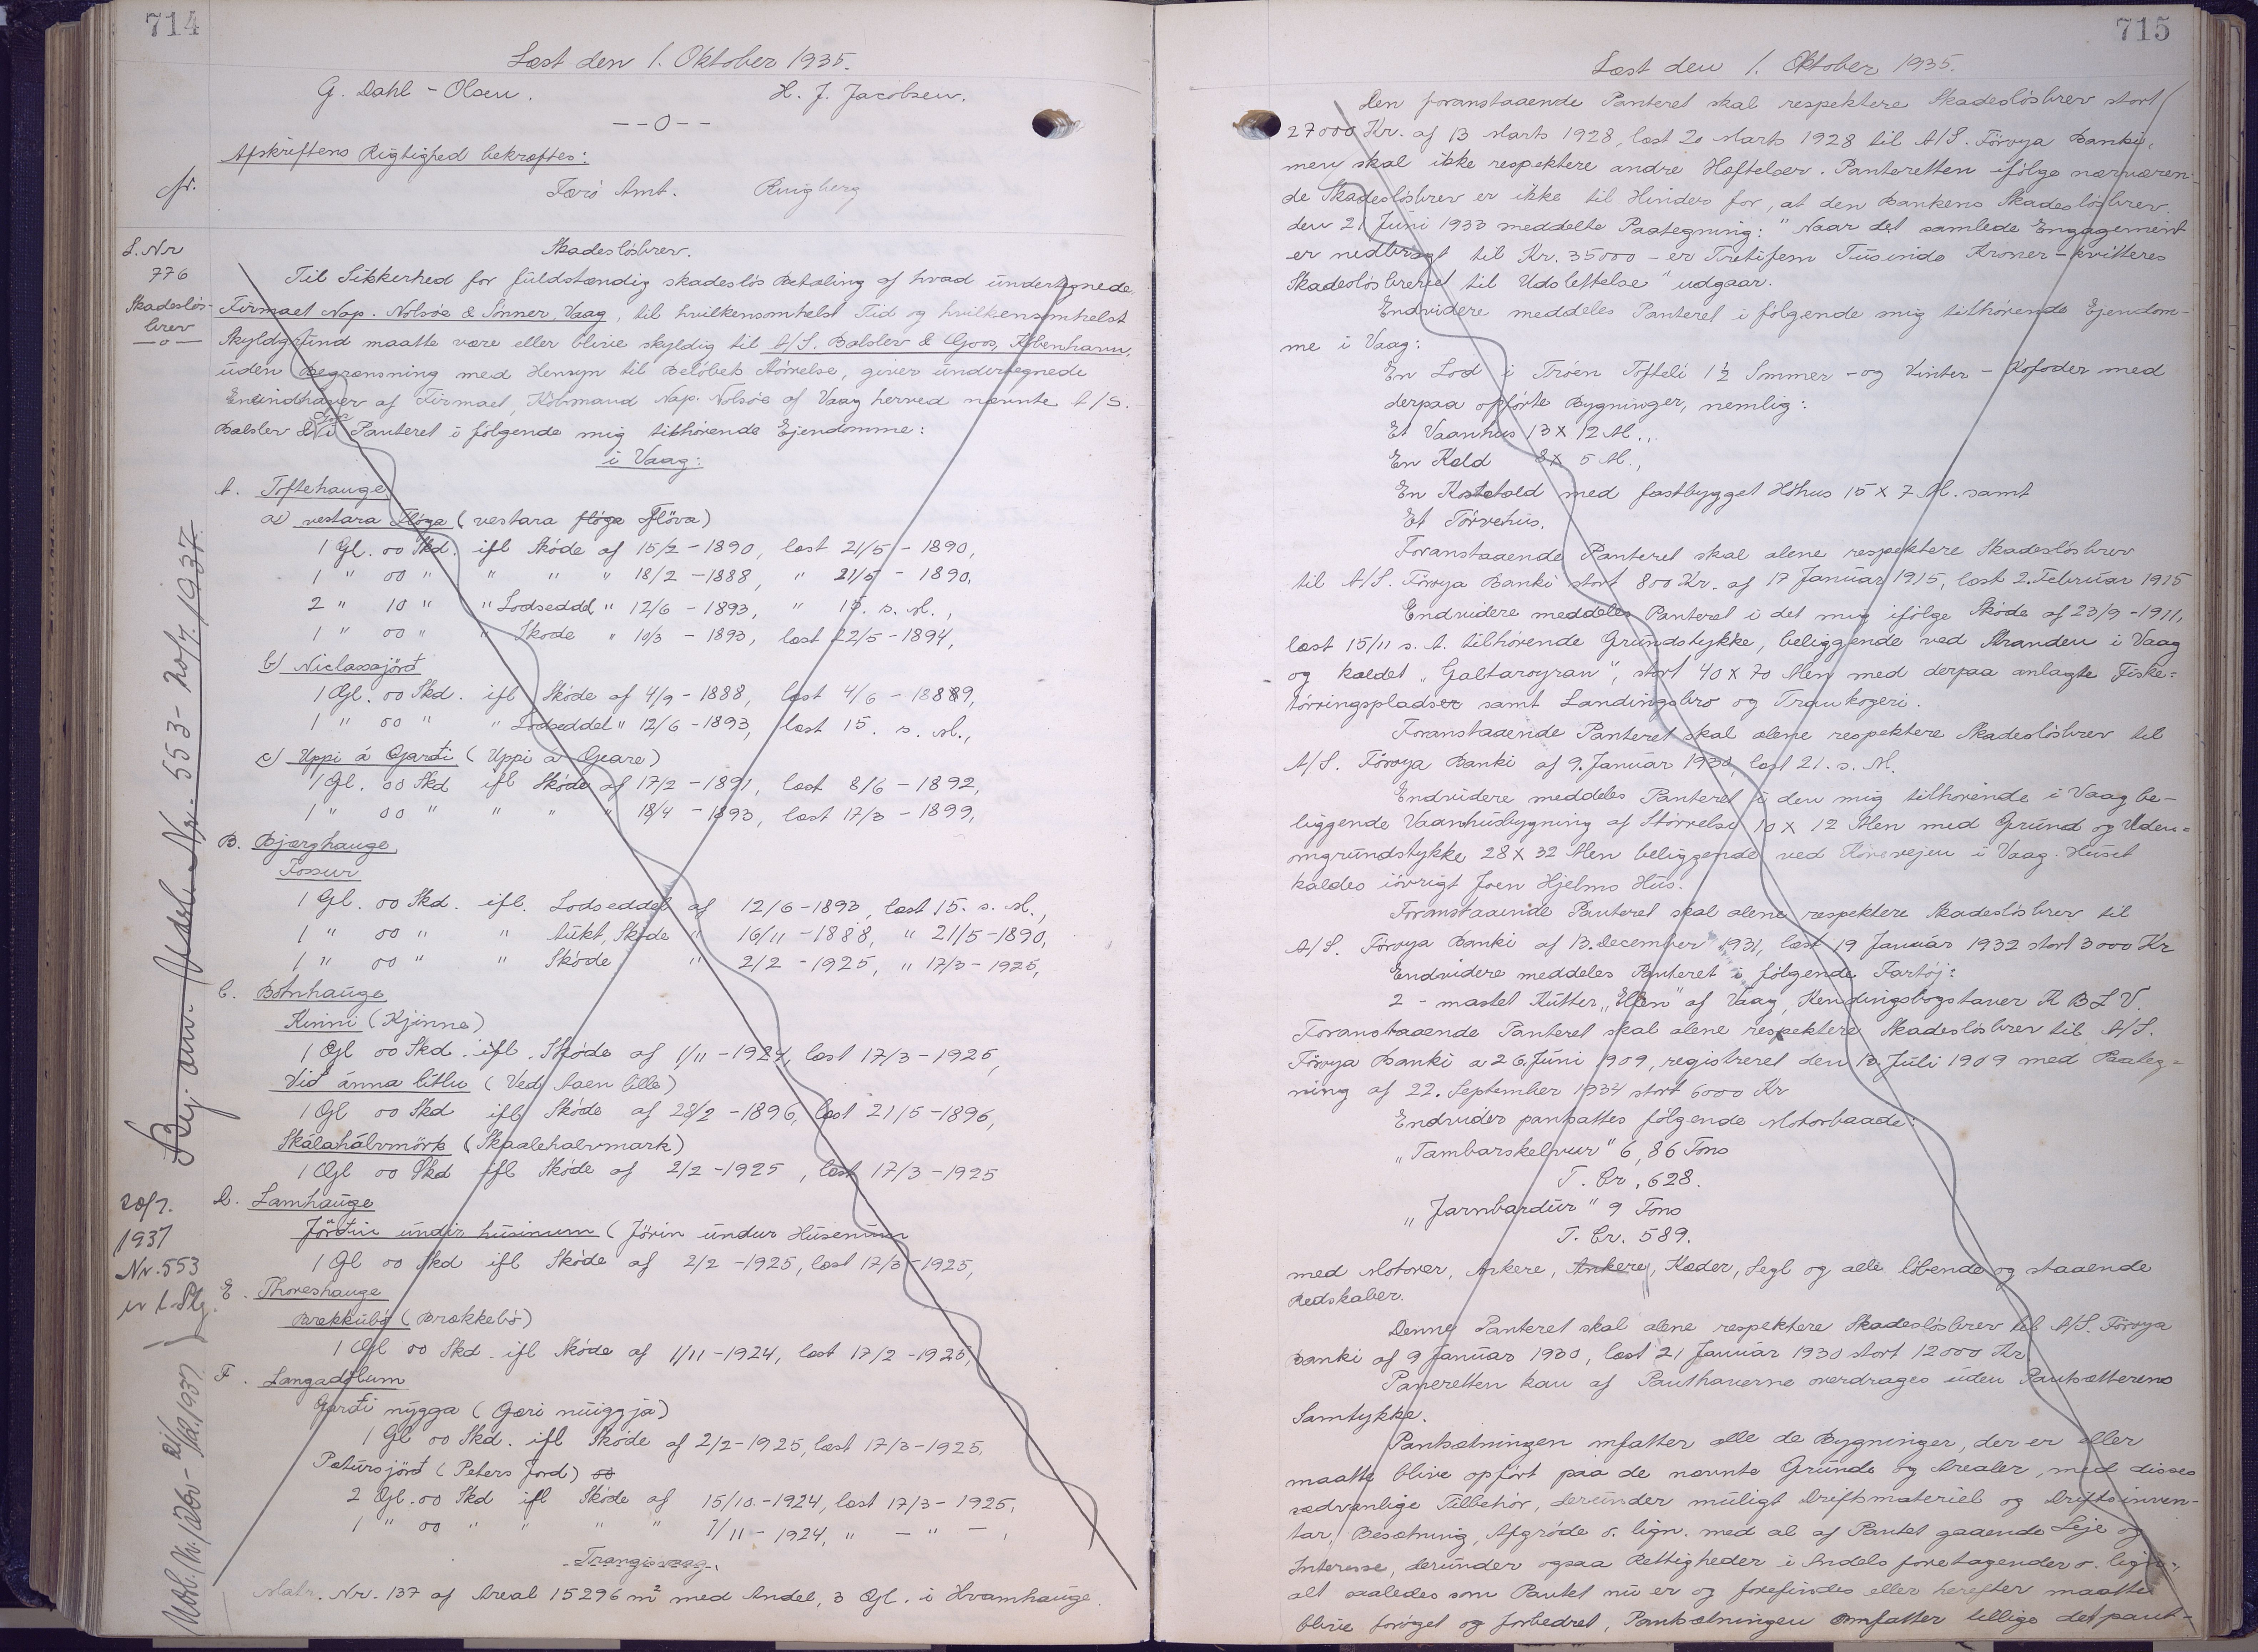 714
Læst den 1. Oktober 1935.
G. Dahl-Olsen. H. J. Jacobsen.
--o--
Afskriftens Rigtighed bekræftes:
Færø Amt. Ringberg
L. Nr
776
Skadesløs-
brev
—o—
Skadesløsbrev.
Til Sikkerhed for fuldstændig skadesløs Betaling af hvad undertegnede
Firmaet Nap. Nolsøe & Sønner, Vaag, til hvilkensomhelst Tid og hvilkensomhelst
Skyldgrund maatte være eller blive skyldig til A/S. Balslev & Goos, København,
uden Begrænsning med Hensyn til Beløbets Størrelse, giver undertegnede
Eneindhaver af Firmaet, Købmand Nap. Nolsøe af Vaag herved nævnte A/S.
Balslev & Goos Panteret i følgende mig tilhørende Ejendomme:
i Vaag:
A. Toftehauge
a) vestara Fløga (vestara fløga Fløva)
1 Gl. oo Skd. ifl Skøde af 15/2-1890, læst 21/5-1890,
1 " oo " " " " 18/2-1888, " 21/5-1890,
2 " 10 " " Lodseddel " 12/6-1893, " 15. s. M.,
1 " oo " " Skøde " 10/3-1893, læst 22/5-1894,
b) Niclassajørð
1 Gl. oo Skd. ifl Skøde af 4/9-1888, læst 4/6-1889,
1 " oo " " Lodseddel " 12/6-1893, læst 15. s. M.,
c) Uppi á Garði (Uppi á Geare)
1 Gl. oo Skd ifl Skøde af 17/2-1891, læst 8/6-1892,
1 " oo " " " " 18/4-1893, læst 17/3-1899,
B. Bjærghauge
Fossur
1 Gl. oo Skd. ifl. Lodseddel af 12/6-1893, læst 15. s. M.,
1 " oo " " tukt, Skøde " 16/11-1888, " 21/5-1890,
1 " oo " " Skøde " 2/2-1925, " 17/3-1925,
C. Botnhauge
Kinni (Kjinne)
1 Gl oo Skd. ifl. Skøde af 1/11-1924, læst 17/3-1925,
Við ánna lítlu (Ved Aaen lille)
1 Gl oo Skd ifl Skøde af 28/2-1896, læst 21/5-1896,
Skálahálvmörk (Skaalehalvmark)
1 Gl oo Skd ifl Skøde af 2/2-1925, læst 17/3-1925
D. Lamhauge
Jörðin undir húsinum (Jörin undur Húsenum
1 Gl oo Skd ifl Skøde af 2/2-1925, læst 17/3-1925,
E. Thoreshauge
Brekkubø (Brækkebø)
1 Gl oo Skd. ifl Skøde af 1/11-1924, læst 17/2-1925,
F. Langadølum
Garði nýgga (Gæri núiggja)
1 Gl oo Skd. ifl Skøde af 2/2-1925, læst 17/3-1925,
Pætursjørð (Peters Jord) oo
2 Gl. oo Skd ifl Skøde af 15/10.-1924, læst 17/3-1925,
1 " oo " " " " 7/11-1924, " - " - ,
Trangisvaag.
Matr. Nr. 137 af Areal 15296 m² med Andel, 3 Gl. i Hvamhauge.
20/7.
1937
Nr. 553
Nr. 553- 20/7. 1937.
715
Læst den 1. Oktober 1935.
Den foranstaaende Panteret skal respektere Skadesløsbrev stort
27000 Kr. af 13 Marts 1928, læst 20 Marts 1928 til A/S. Föroya Banki,
men skal ikke respektere andre Hæftelser. Panteretten ifølge nærværen-
de Skadesløsbrev er ikke til Hinder for, at den Bankens Skadesløsbrev
den 21 Juni 1933 meddelte Paategning: "Naar det samlede Engagement
er nedbragt til Kr. 35000 - er Tretifem Tusinde Kroner - kvitteres
Skadesløsbrevet til Udslettelse" udgaar.
Endvidere meddeles Panteret i følgende mig tilhørende Ejendom-
me i Vaag:
En Lod i Tróen Tofteli 1½ Sommer- og Vinter-Kofoder med
derpaa opførte Bygninger, nemlig:
Et Vaanhus 13 x 12 Al.,
En Kald 8 x 5 Al.,
En Kostald med fastbygget Høhus 15 x 7 Al. samt
Et Tørvehus.
Foranstaaende Panteret skal alene respektere Skadesløsbrev
til A/S. Föroya Banki stort 800 Kr. af 17 Januar 1915, læst 2. Februar 1915
Endvidere meddeles Panteret i det mig ifølge Skøde af 23/9-1911,
læst 15/11 s. A. tilhørende Grundstykke, beliggende ved Stranden i Vaag
og kaldet "Galtaroyran", stort 40 x 70 Alen med derpaa anlagte Fiske-
tørringspladser samt Landingsbro og Trankogeri.
Foranstaaende Panteret skal alene respektere Skadesløsbrev til
A/S. Föroya Banki af 9. Januar 1930, læst 21. s. M.
Endvidere meddeles Panteret i den mig tilhørende i Vaag be-
liggende Vaanhusbygning af Størrelse 10 x 12 Alen med Grund og Uden-
omgrundstykke 28 x 32 Alen beliggende ved i Vaag. Huset
kaldes iøvrigt Joen Hjelms Hus.
Foranstaaende Panteret skal alene respektere Skadesløsbrev til
A/S. Föroya Banki af 13. December 1931, læst 19 Januar 1932 stort 3000 Kr
Endvidere meddeles Panteret i følgende Fartøj:
2-mastet Kutter "Ellen" af Vaag, Kendingsbogstaver
Foranstaaende Panteret skal alene respektere Skadesløsbrev til A/S.
Föroya Banki a 26 Juni 1909, registreret den 13. Juli 1909 med Paateg-
ning af 22. September 1934 stort 6000 Kr
Endvider pantsættes følgende Motorbaade:
"Tambarskelvur" 6,86 Tons
T. Gr. 628.
"Jarnbardur" 9 Tons
T. Gr. 589.
med Motorer, Ankere, Ankere, Kæder, Segl og alle løbende og staaende
Redskaber.
Denne Panteret skal alene respektere Skadesløsbrev til A/S. Föroya
Banki af 9 Januar 1930, læst 21 Januar 1930 stort 12000 Kr
Paneretten kan af Panthaverne overdrages uden Pantsætterens
Samtykke.
Pantsætningen mfatter alle de Bygninger, der er eller
maatte blive opført paa de nævnte Grunde og Arealer, med disses
sædvanlige Tilbehør, derunder muligt Driftsmateriel og Driftsinven-
tar, Besætning, Afgrøde o. lign. med al af Pantet gaaende Leje og
Interesse, derunder ogsaa Rettigheder i Andels foretagender o. lign.,
alt saaledes som Pantet nu er og forefindes eller herefter maatte
blive forøget og forbedret, Pantsætningen omfatter tillige det pant-